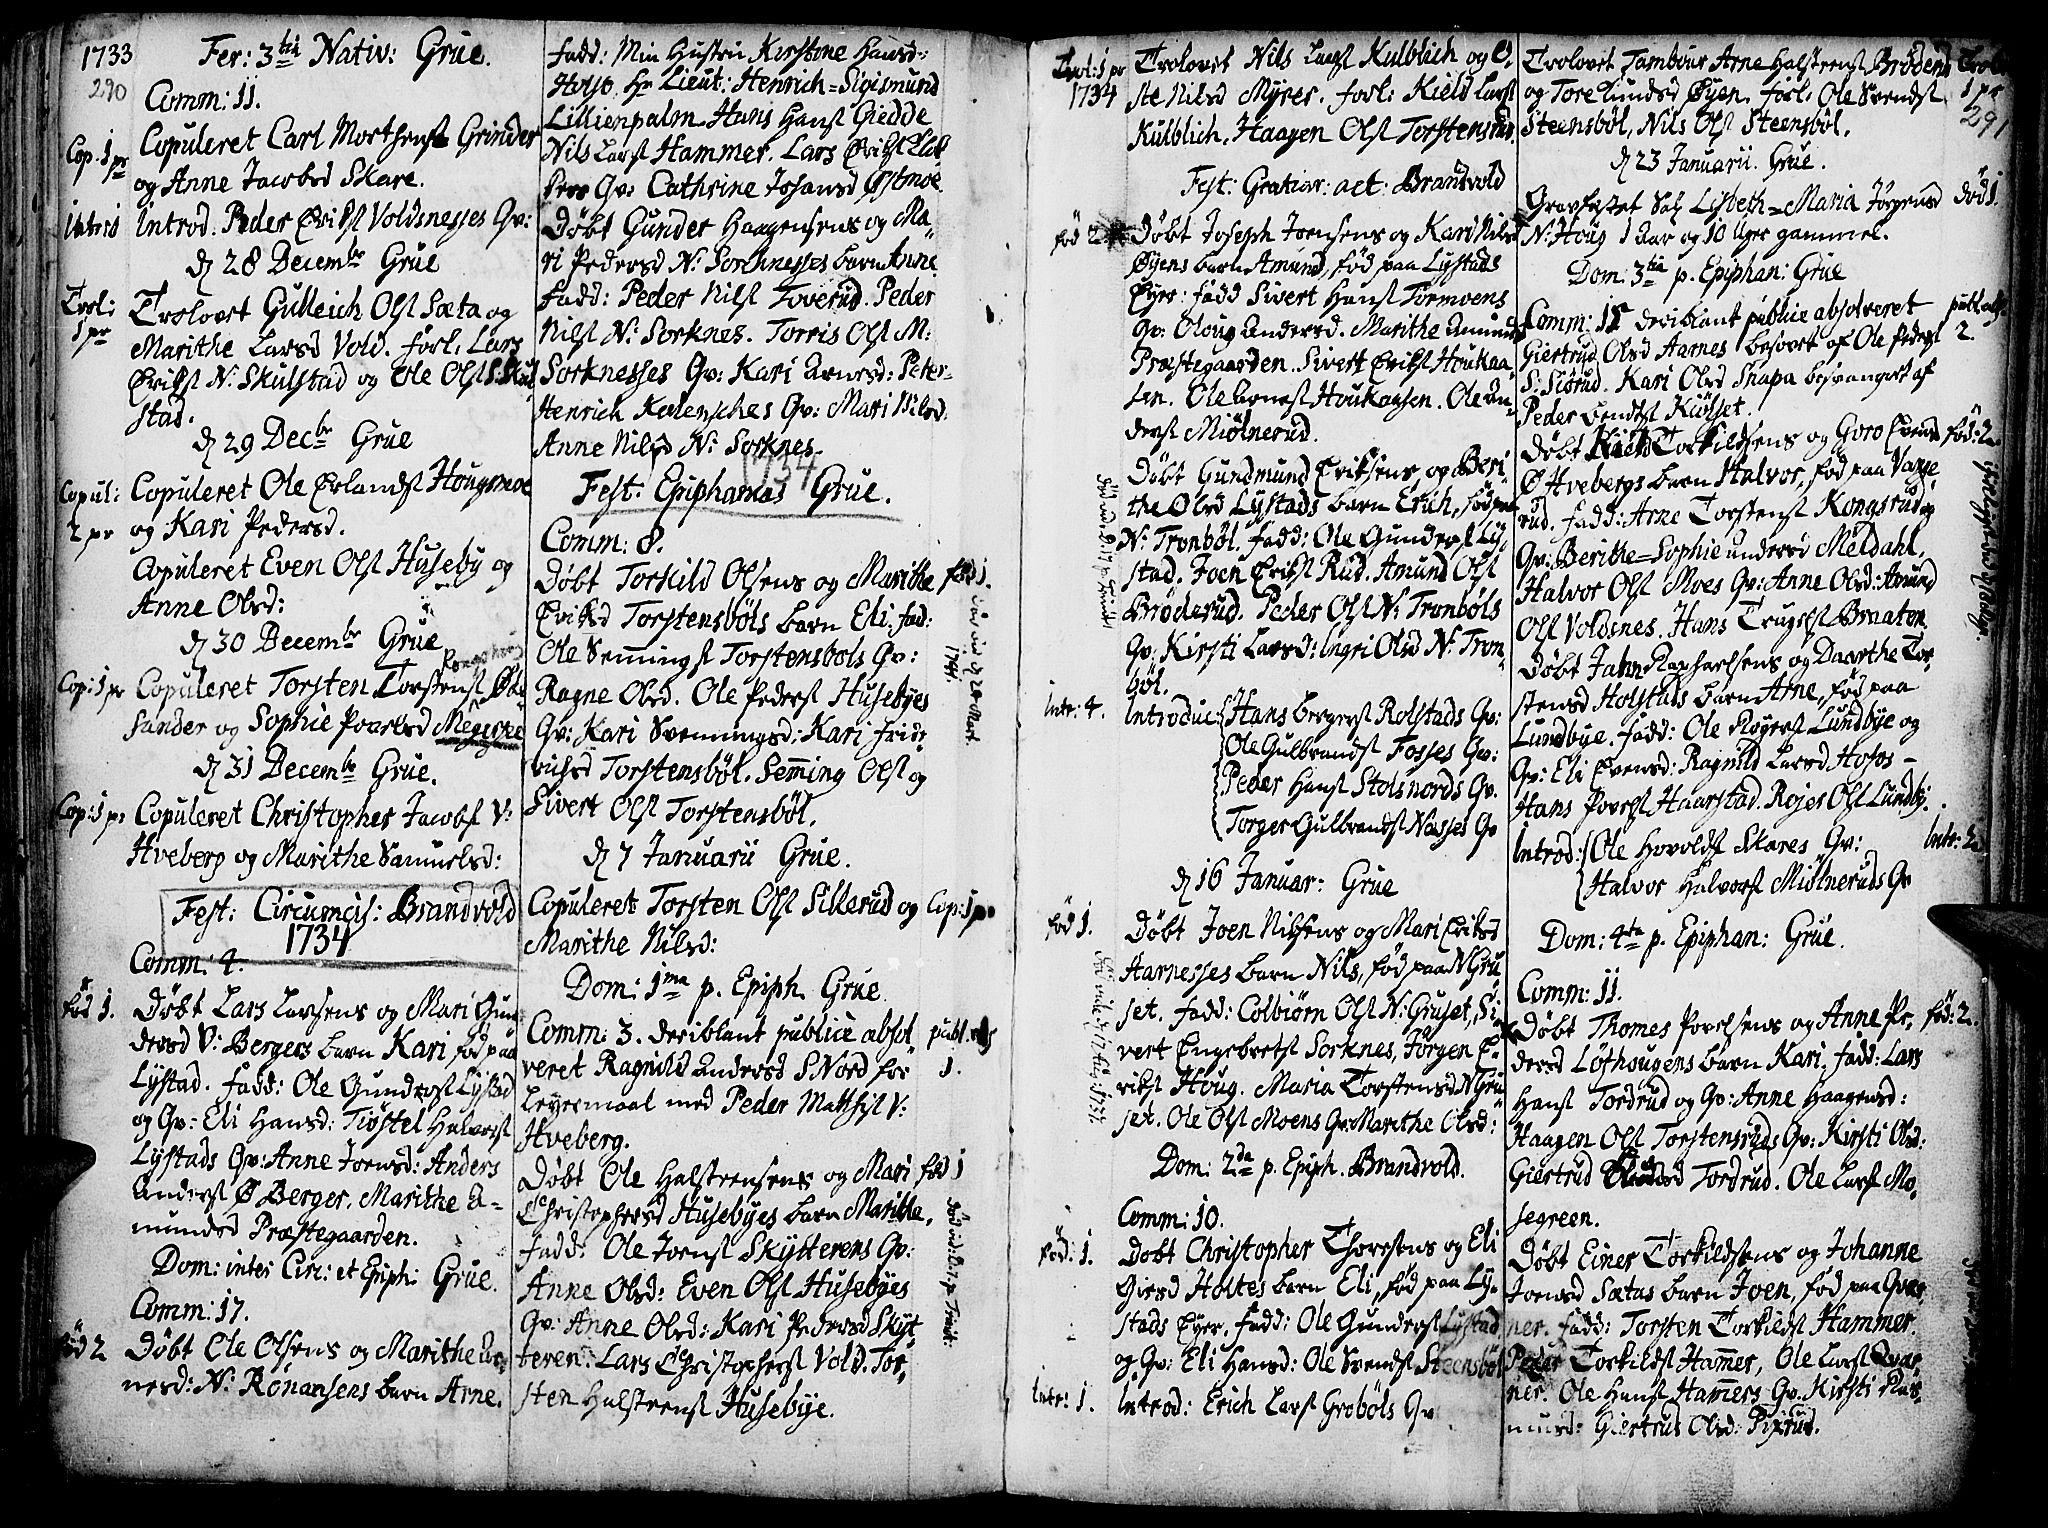 1733
290
Fer: 3tia Nativ: Grue.
Comm: 11.
Cop: 1 pr
Copuleret Carl Morthenst Grinder
og Anne Jacobsd Skare.
Introd. Peder Erichst Voldsnesses Qv:
D 28 Decembr Grue
Trol: 1 pr
Trolovet Gulleich Olst Sæta og
Marithe Larsd Vold. forl: Lars
Erichst N: Skulstad og Ole Olst S. Skul
stad.
D 29 Decbr Grue
Copul: 2 pr
Copuleret Ole Erlandst Hougsmoe
og Kari Pedersd.
Copuleret Even Olst Huseby og
Anne Olsd:
D 30 Decembr Grue
Cop: 1 pr
Copuleret Torsten Torstenst
sander og Sophie Poarlsd
D 31 Decembr Grue.
Cop: 1 pr
Copuleret Christopher Jacobst V:
Hveberg og Marithe Samuelsd:
Fest: Circumcis: Brandvold
1734
Comm: 4.
fød 1.
Døbt Lars Larsens og Mari Gun
dersd V: Bergers barn Kari fød paa
Lystad. fadd: Ole Gunderst Lystad
og Qv: Eli Hansd: Tiøstel Halvorst
Lystads Qv: Anne Joensd: Anders
Anderst Ø Berger. Marithe A-
mundsd Præstegaarden.
Dom: inter Circ: et Epiph: Grue.
Comm: 17.
fød 2
Døbt Ole Olsens og Marithe Ar
nesd: N: Rønansens barn Arne.
fadd: Min Hustru Kirstine Hansd:
Holst. Hr Lieut: Henrich=Sigismund
Lillienpalm. Hans Hanst Giedde
Nils Larst Hammer. Lars Erichst
Qv: Cathrine Johansd Østmoe.
Døbt Gunder Haagensens og Ma-
ri Pedersd N: Sorknesses barn Anne
fadd: Peder Nilst Toverud. Peder
Nilst N: Sorknes. Torris Olst M:
Sorknesses Qv: Kari Arnesd: Peter-
Henrich Qv: Mari Nilsd.
Anne Nilsd N: Sorknes.
1734
Fest. Epiphanias Grue.
Comm: 8.
fød 1.
Døbt Torkild Olsens og Marithe
Erichsd Torstensbøls barn Eli. fad:
Ole Semingst Torstensbols Qv:
Ragne Olsd. Ole Pederst Husebyes
Qv: Kari Svenningsd: Kari Frid-
richsd Torstensbøl. Seming Olst og
Sivert Olst Torstensbøl.
D 7 Januarii Grue.
Copuleret Torsten Olst Sillerud og Cop: 1 pr
Marithe Nilsd:
Dom: 1ma p. Epiph. Grue.
Comm: 3. deriblant publice absol
veret Ragnild Andersd S Nord for
Leyersmaal med Peder Mathist V:
Hveberg.
Døbt Ole Halstensens og Mari fød 1
Christophersd Husebyes barn Marithe.
fadd: Ole Joenst Skytterens Qv:
Anne Olsd: Even Olst Husebyes
Qv: Anne Olsd: Kari Pedersd Skyt
teren: Lars Christopherst Vold. Tor-
sten Halstenst Husebye.
Trol: 1 pr
1734
Trolovet Nils Larst Kulblich og
ste Nilsd Myrer. forl: Kield Larst
Kulblich. Haagen Olst Torstensrud.
Fest: Gratiar: act: Brandvold
fød 2
Døbt Joseph Joensens og Kari Nilsd
Øyens barn Amund, fød paa Lystads
Eyer: fadd Sivert Hanst Tormoens
Qv: Oloug Andersd. Marithe Amundsd
Præstegaarden. Sivert Erichst Houkaa-
sen. Ole Arnest Houkaasen. Ole An-
derst Miølnerud.
Døbt Gundmund Erichsens og Beri-
the Olsd Lystads barn Erich, fød paa
N: Trønbøl. fadd: Ole Gunderst Ly-
stad. Joen Erichst Rud. Amund Olst
Brøderud. Peder Olst N: Trønbøls
Qv: Kirsti Larsd: Ingri Olsd N: Trøn-
bøl.
Intr: 4.
Introduc: Hans Bergerst Rolstads Qv:
Ole Gulbrandst Fosses Qv:
Peder Hanst Stolsnords Qv.
Torger Gulbrandst Nasses Qv
D 16 Januar: Grue
fød 1.
Døbt Joen Nilsens og Mari Erichsd
Aarnesses barn Nils, fød paa N Gru-
set. fadd: Colbiørn Olst N: Gruset, Si-
vert Engebretst Sorknes, Jørgen E-
richst Houg. Maria Torstensd N Gru
set. Ole Olst Moens Qv Marithe Olsd:
Dom: 2da p. Epiph. Brandvold.
Comm: 10.
fød: 1.
Døbt Christopher Thoresens og Eli
Giersd Holtes barn Eli, fød paa Ly-
stads Eyer. fadd: Ole Gunderst Lystad
og Qv: Eli Hansd: Ole Svendst Steensbøl
Intr: 1.
Introd: Erich Larst Grøbøls Qv
291
Trolovet Tambour Arne Halstenst Brøden
og Tore Lundsd Øyen. forl: Ole Svendst
Steensbøl, Nils Olst Steensbøl.
D 23 Januarii. Grue.
Gravfæstet Sal Lisbeth=Maria Jørgensd død 1.
N: Houg 1 Aar og 10 Uger gammel.
Dom: 3tia p. Epiphan: Grue
Comm: 18 deriblant publice absolveret publ: abs. 2.
Giertrud Olsd Aarnes besovet af Ole Pederst
S: Siørud. Kari Olsd Snapa besvangret af
Peder Bendtst Kiølset.
Døbt Torkildsens og Goro Evensd fød: 2
Ø Hvebergs barn Halvor, fød paa
rud. fadd: Arne Torstenst Kongsrud og
Qv: Berithe=Sophie Andersd Meldahl.
Halvor Olst Moes Qv: Anne Olsd: Amund
Olst Voldsnes. Hans Trugelst Braaten.
Døbt Jahn Raphaelsens og Daarthe Tor-
stensd Holstads barn Arne, fød paa
Lundbye. fadd: Ole Røyerst Lundbye og
Qv: Eli Evensd: Ragnild Larsd Hofos-
Hans Povelst Haarstad. Rojer Olst Lundby.
Intr: 2
Introd: Ole Hovoldst Skares Qv:
Halvor Halvorst Miølneruds Qv
Dom: 4ta p. Epiphan: Grue.
Comm: 11.
Døbt Thomes Povelsens og Anne Pe- fød: 2.
dersd Løfhougens barn Kari. fadd: Lars
Hanst Tordrud og Qv: Anne Haagensd:
Haagen Olst Torstensruds Qv: Kirsti Olsd:
Giertrud Tordrud. Ole Larst Mo-
segreen.
Døbt Einer Torkildsens og Johanne
Joensd Sætas barn Joen, fød paa Qver
ner. fadd: Torsten Torkildst Hammer.
Peder Torkildst Hammer, Ole Larst Qvær
ner. Ole Hanst Hammers Qv: Kirsti
Giertrud Olsd: